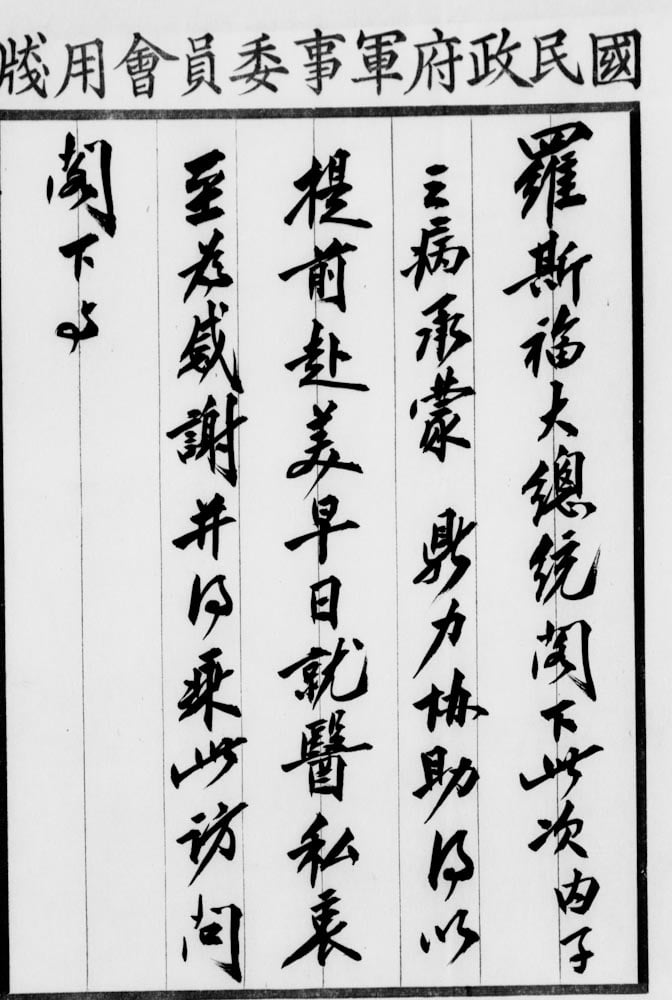 國民政府軍事委員會用牋
羅斯福大總統閣下此次內子
之病承蒙 鼎力協助得以
提前赴美早日就醫私衷
至為感謝并得乘此訪問
閣下與